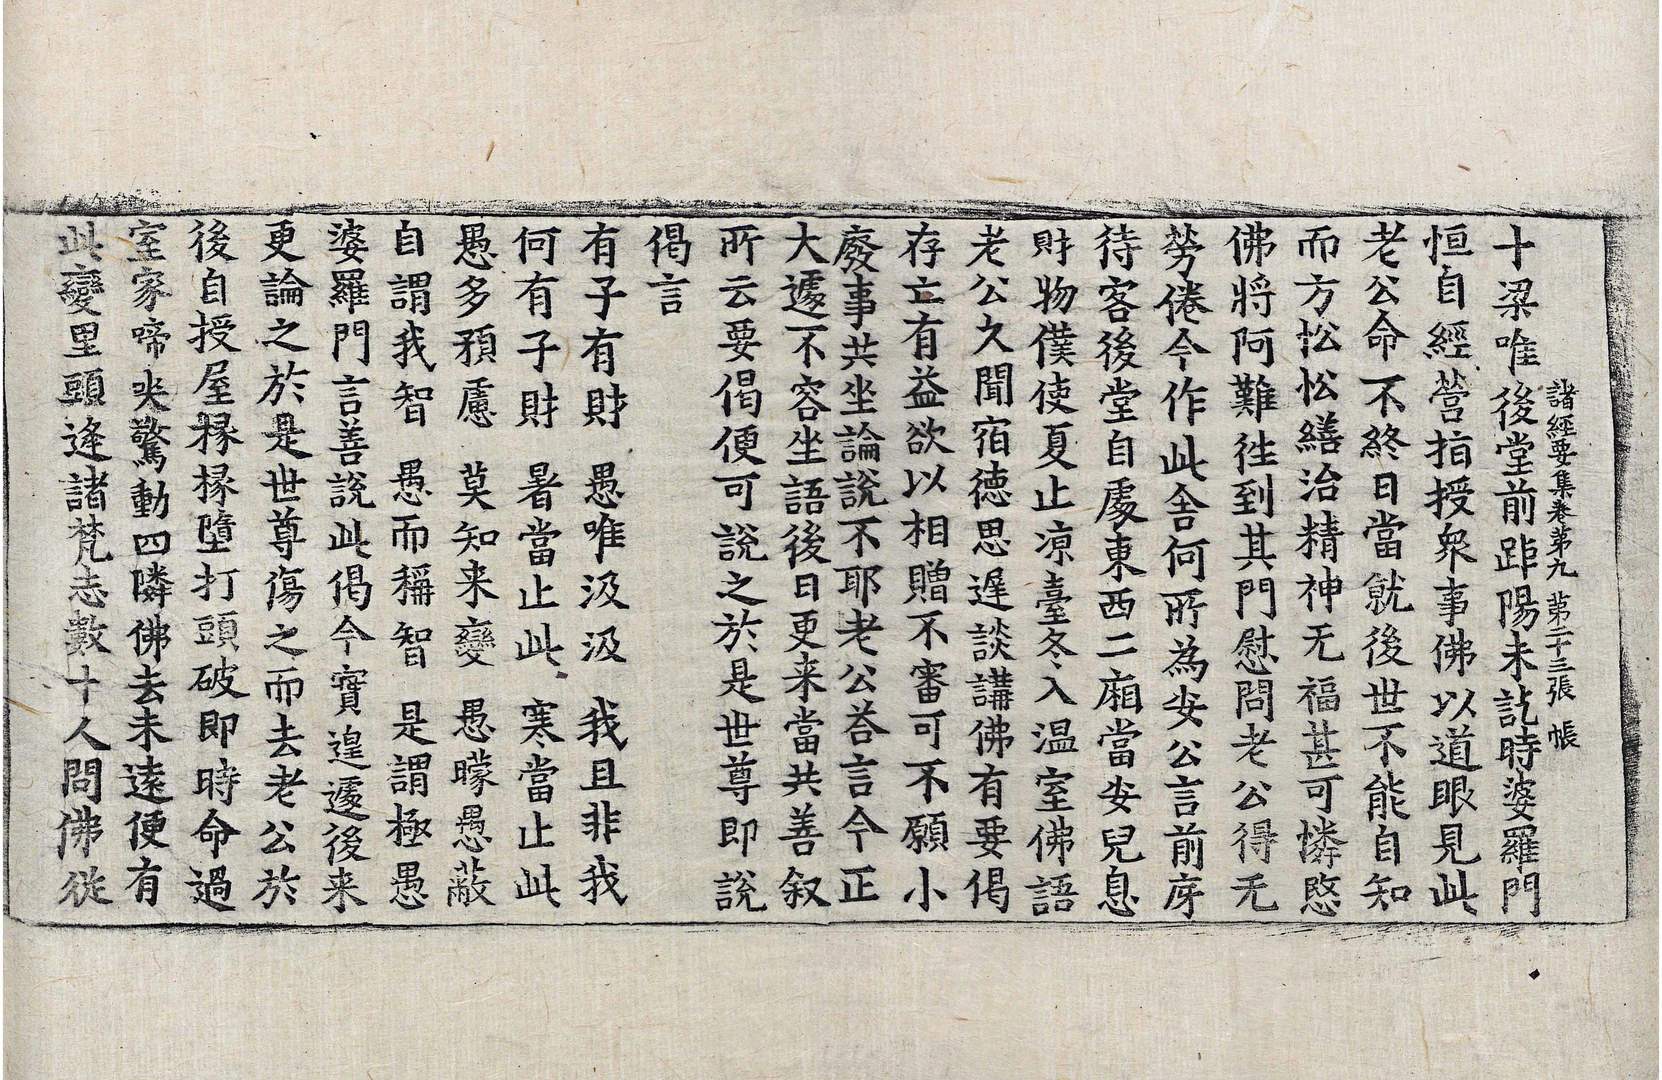 諸經要集卷第九　第二十三張　帳
十梁唯後堂前距陽未訖時婆羅門
恒自經營指授衆事佛以道眼見此
老公命不終日當就後世不能自知
而方忪忪繕治精神无福甚可憐愍
佛將阿難往到其門慰問老公得无
勞倦今作此舍何所為安公言前庌
待客後堂自處東西二廂當安兒息
財物僕使夏止凉臺冬入温室佛語
老公久聞宿德思遲談講佛有要偈
存亡有益欲以相贈不審可不願小
廢事共坐論說不耶老公荅言今正
大遽不容坐語後日更来當共善叙
所云要偈便可說之於是世尊即說
偈言
有子有財　愚唯汲汲　我且非我
何有子財　暑當止此　寒當止此
愚多預慮　莫知来變　愚曚愚蔽
自謂我智　愚而稱智　是謂極愚
婆羅門言善說此偈今實遑遽後来
更論之於是世尊傷之而去老公於
後自授屋椽椽墮打頭破即時命過
室家啼哭驚動四隣佛去未遠便有
此變里頭逢諸梵志數十人問佛從